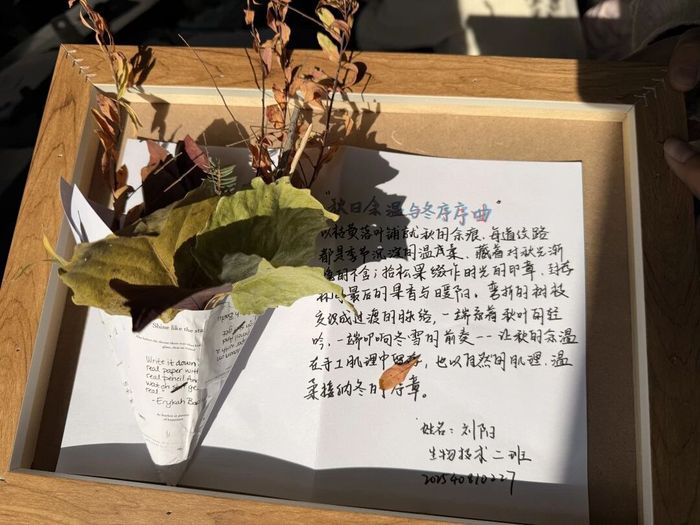 Shine like the
Write it down
real paper with
real pencil. And
watch shit get
real
-Erykah
"秋日余温与冬序序曲"
以枯黄落叶铺就秋的余痕，每道纹路
都是季节沉淀的温柔、藏着对秋光渐
的不舍；拾松果缀作时光的印章，封存
最后的果香与暖阳。弯折的树枝
交织成过渡的脉络，一端系着秋叶的轻
吟，一端叩响冬雪的前奏--让秋的余温
在手工肌理中，也以自然的肌理，温
柔接纳冬的序章。
姓名：刘阳
生物技术二班
202540810227